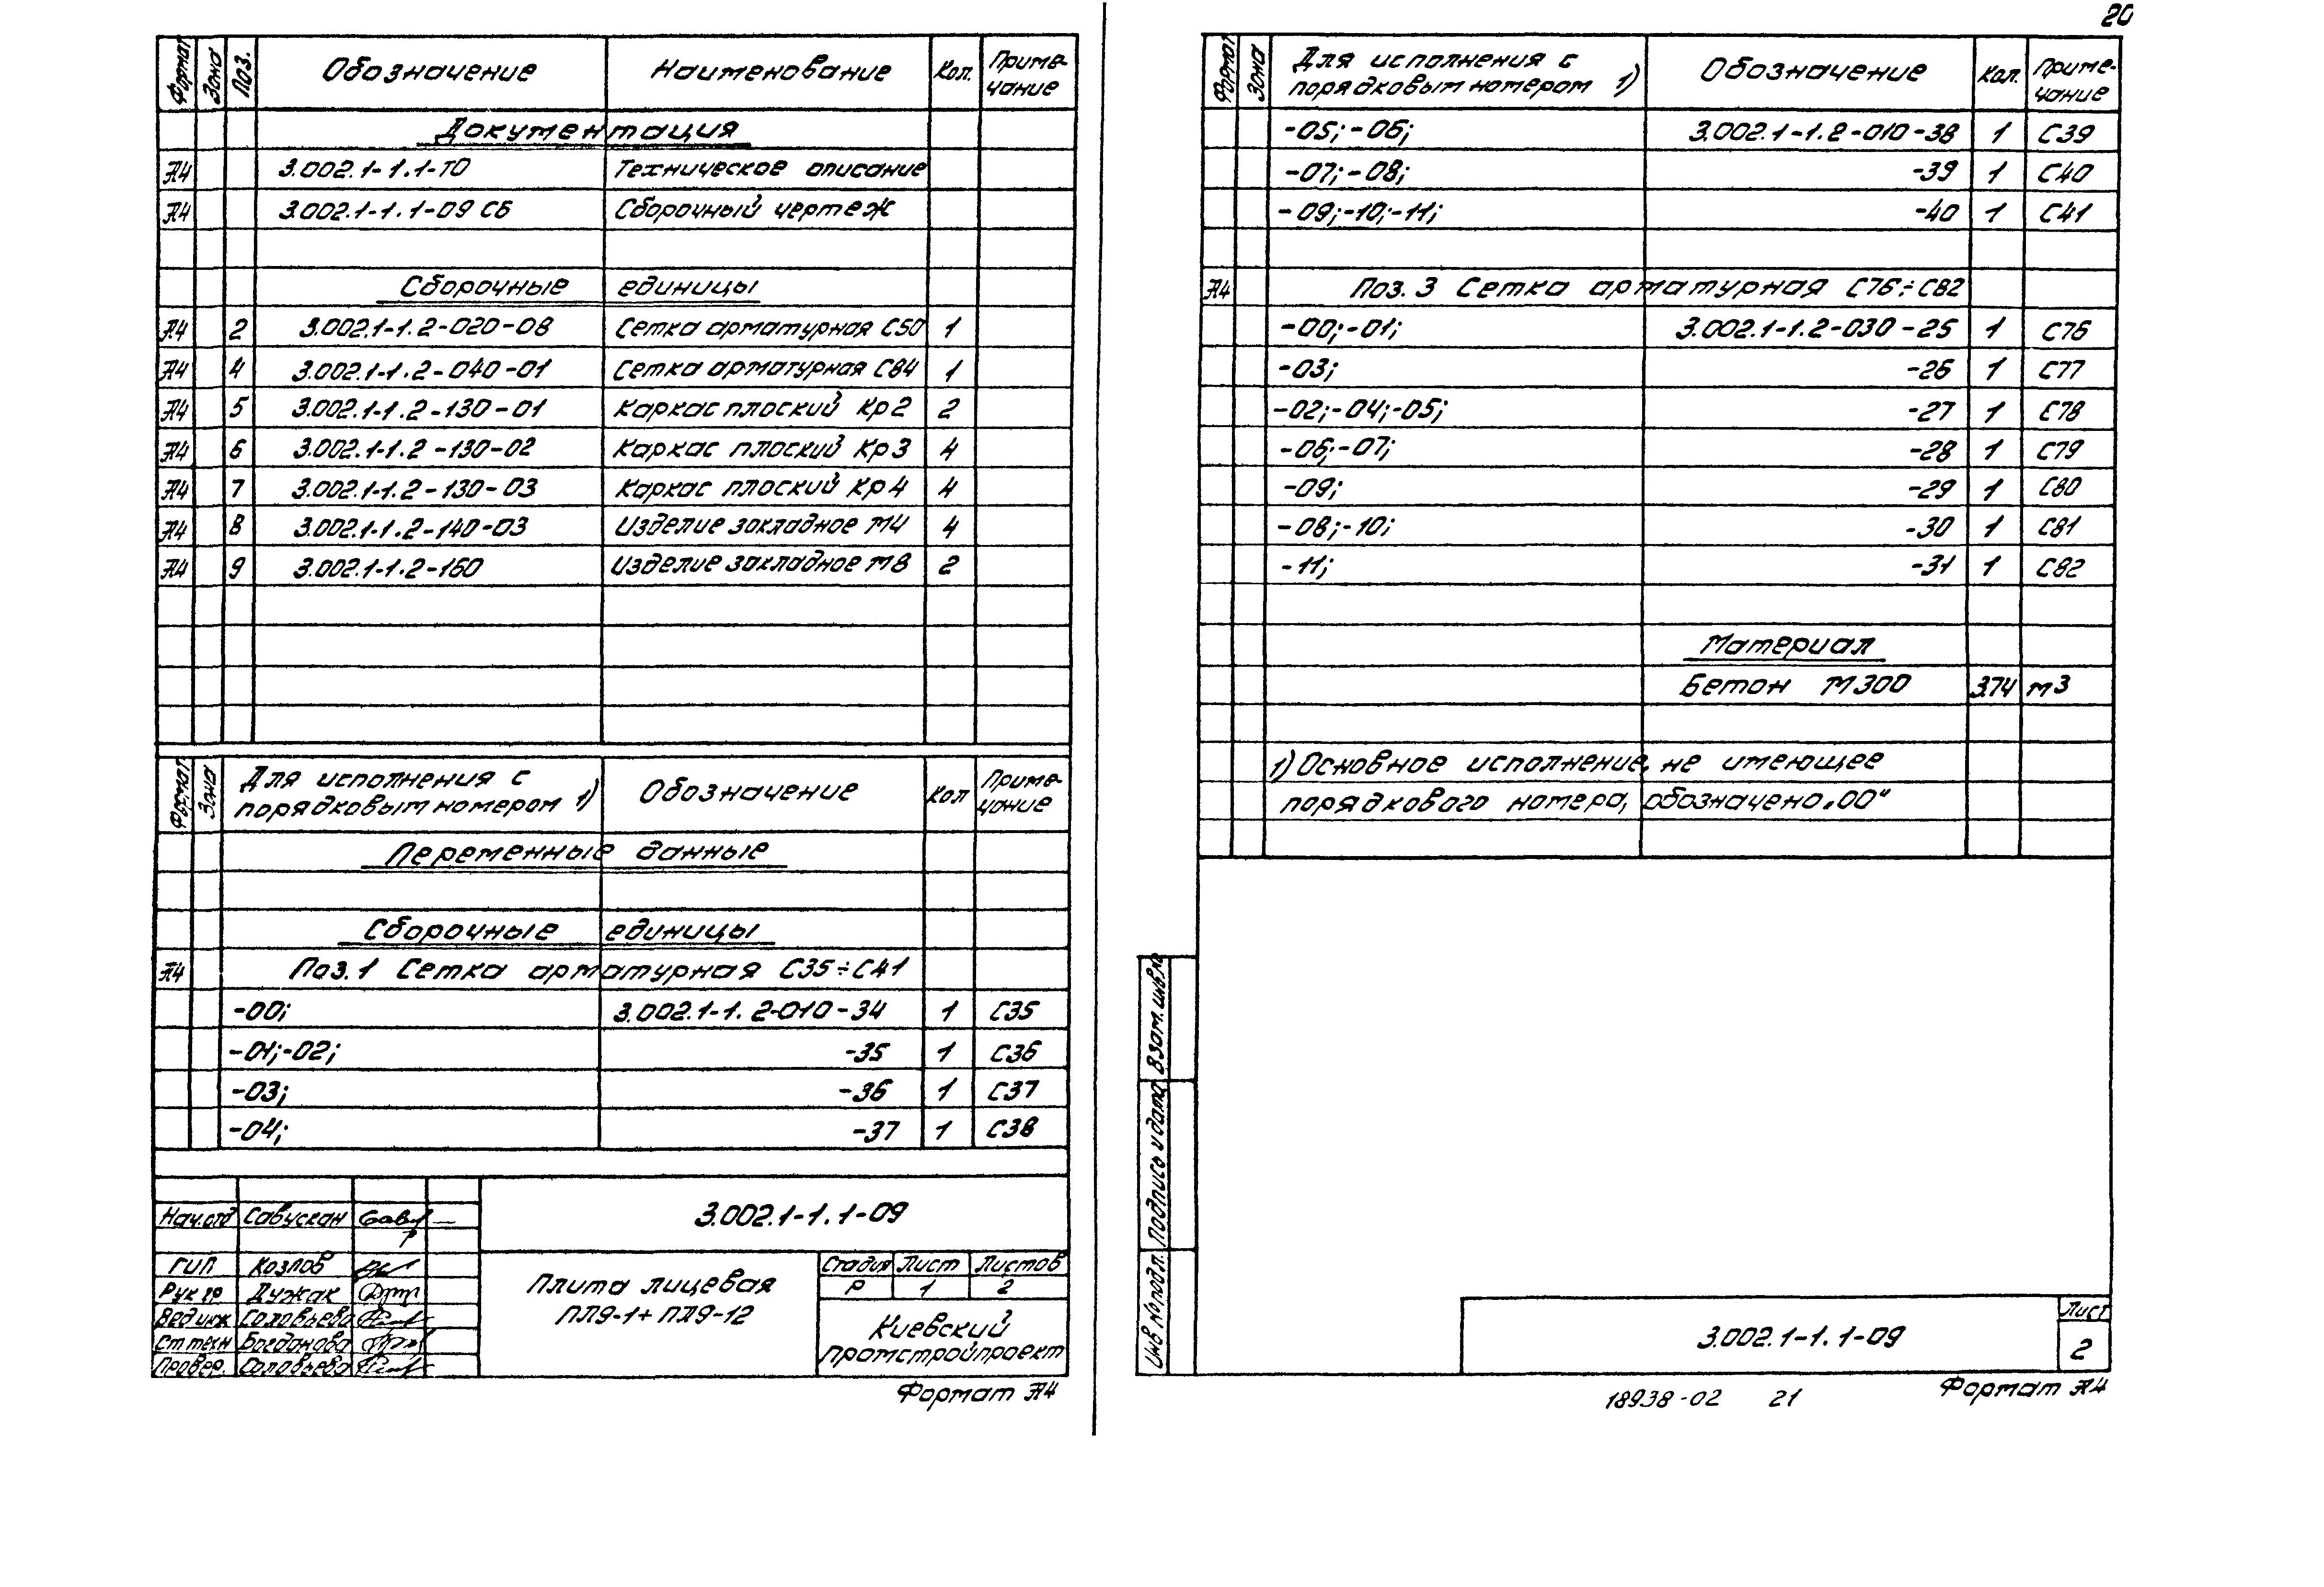 20
Формат Зона Поз. Обозначение Наименование Кол. Приме-
чание
Документация
А4 3.002.1-1.1-ТО Техническое описание
А4 3.002.1-1.1-09 СБ Сборочный чертеж
Сборочные единицы
А4 2 3.002.1-1.2-020-08 Сетка арматурная С50 1
А4 4 3.002.1-1.2-040-01 Сетка арматурная С84 1
А4 5 3.002.1-1.2-130-01 Каркас плоский Кр2 2
А4 6 3.002.1-1.2-130-02 Каркас плоский Кр3 4
А4 7 3.002.1-1.2-130-03 Каркас плоский Кр4 4
А4 8 3.002.1-1.2-140-03 Изделие закладное М4 4
А4 9 3.002.1-1.2-160 Изделие закладное М8 2
Формат Зона Для исполнения с
порядковым номером 1) Обозначение Кол Приме-
чание
Переменные данные
Сборочные единицы
А4 Поз.1 Сетка арматурная С35÷С41
-00; 3.002.1-1.2-010-34 1 С35
-01;-02; -35 1 С36
-03; -36 1 С37
-04; -37 1 С38
Нач.отд Савускан
ГИП Козлов
Рук гр Дужак
Вед инж Соловьева
Ст техн Богданова
Провер. Соловьева
3.002.1-1.1-09
Плита лицевая
ПЛ9-1÷ПЛ9-12
Стадия Лист Листов
Р 1 2
Киевский
Промстройпроект
Формат А4
Формат Зона Для исполнения с
порядковым номером 1) Обозначение Кол. Приме-
чание
-05;-06; 3.002.1-1.2-010-38 1 С39
-07;-08; -39 1 С40
-09;-10;-11; -40 1 С41
А4 Поз.3 Сетка арматурная С76÷С82
-00;-01; 3.002.1-1.2-030-25 1 С76
-03; -26 1 С77
-02;-04;-05; -27 1 С78
-06;-07; -28 1 С79
-09; -29 1 С80
-08;-10; -30 1 С81
-11; -31 1 С82
Материал
Бетон М300 3.74 м3
1) Основное исполнение, не имеющее
порядкового номера, обозначено „00“
Взам. инв.№
Подпись и дата
Инв № подл.
3.002.1-1.1-09
Лист
2
18938-02 21
Формат А4